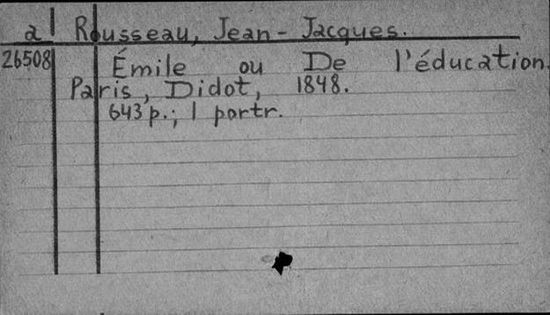 a Rousseau, Jean-Jacques.
26508 Émile ou De l'éducation.
Paris, Didot, 1848.
643 p.; 1 portr.